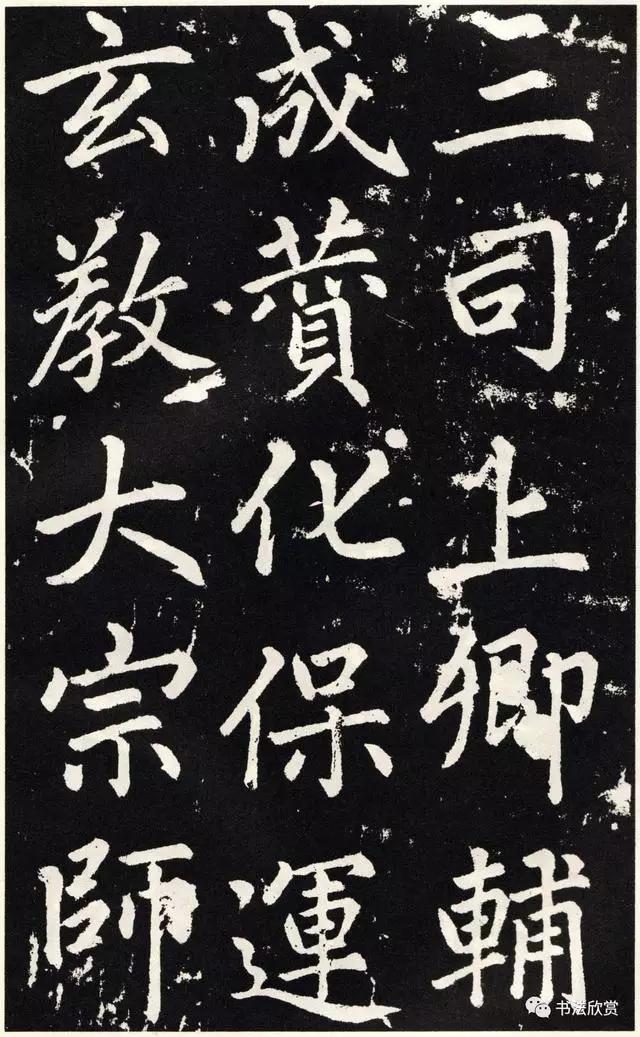 三司上卿輔
成賛化保運
玄教大宗師
书法欣赏